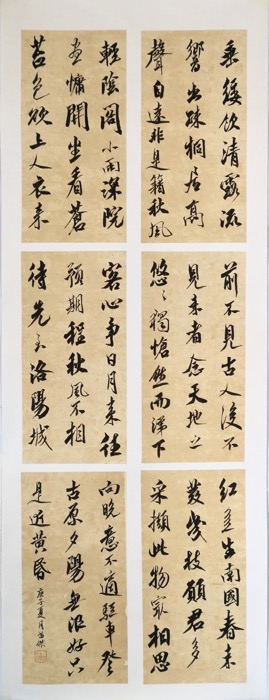 垂緌飲清露流
響出疎桐居高
聲自遠非是籍秋風
輕陰閣小雨深院
晝慵開坐看蒼
苔色欲上人衣来
前不見古人後不
見来者念天地之
悠悠獨愴然而涕下
客心爭日月来往
預期程秋風不相
待先至洛陽城
紅豆生南國春来
發幾枝願君多
采擷此物最相思
向晚意不適驅車登
古原夕陽無限好只
是近黃昏
庚子夏月